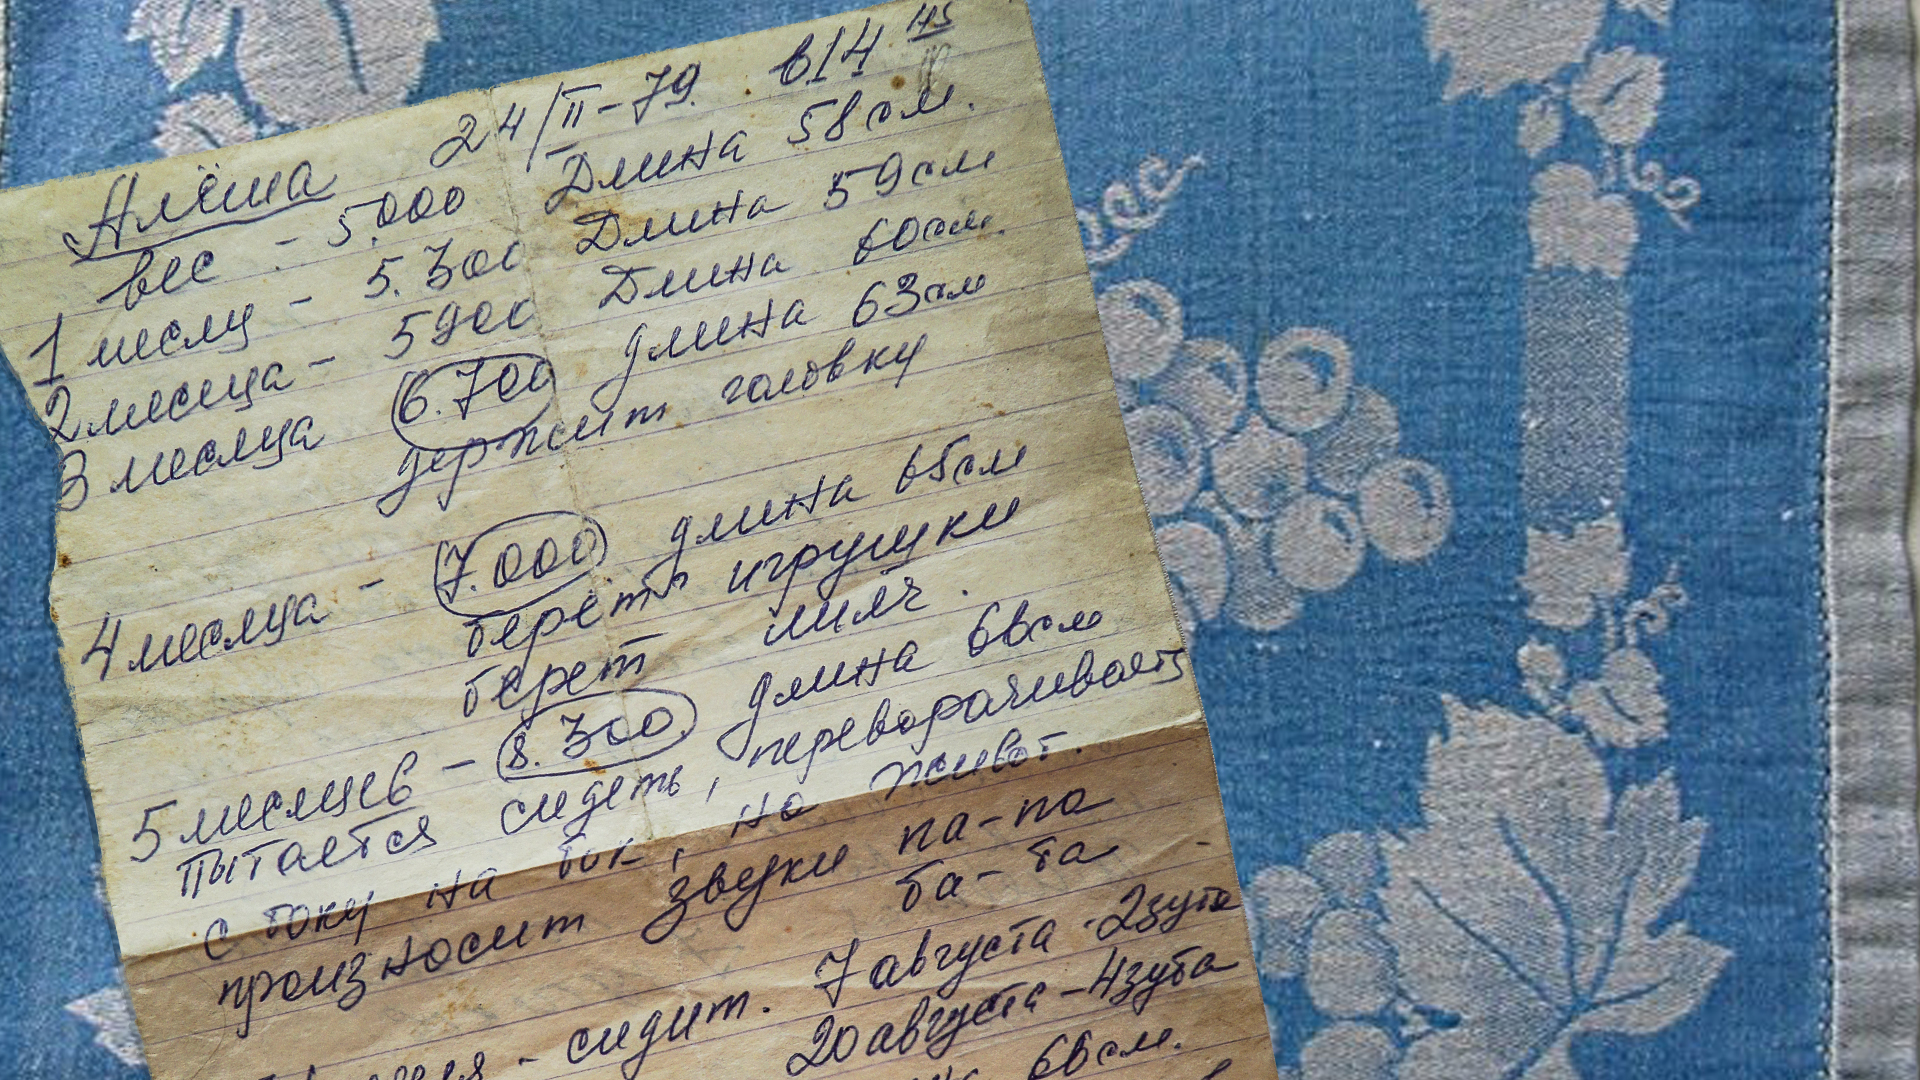 Алёша 24/II-79. в.14 45
вес - 5.000 Длина 58 см.
1 месяц - 5.300 Длина 59 см
2 месяца - 5900 Длина 60 см.
3 месяца 6.700 длина 63 см
держит головку
4 месяца - 7.000 длина 65 см
берёт игрушки
берет мяч.
5 месяцев - 8.300 длина 66 см
пытается сидеть, переворачивает
с боку на бок, на живот.
произносит звуки па-па
ба-ба
- сидит. 7 августа - 2 зуба
20 августа - 4 зуба
66 см.